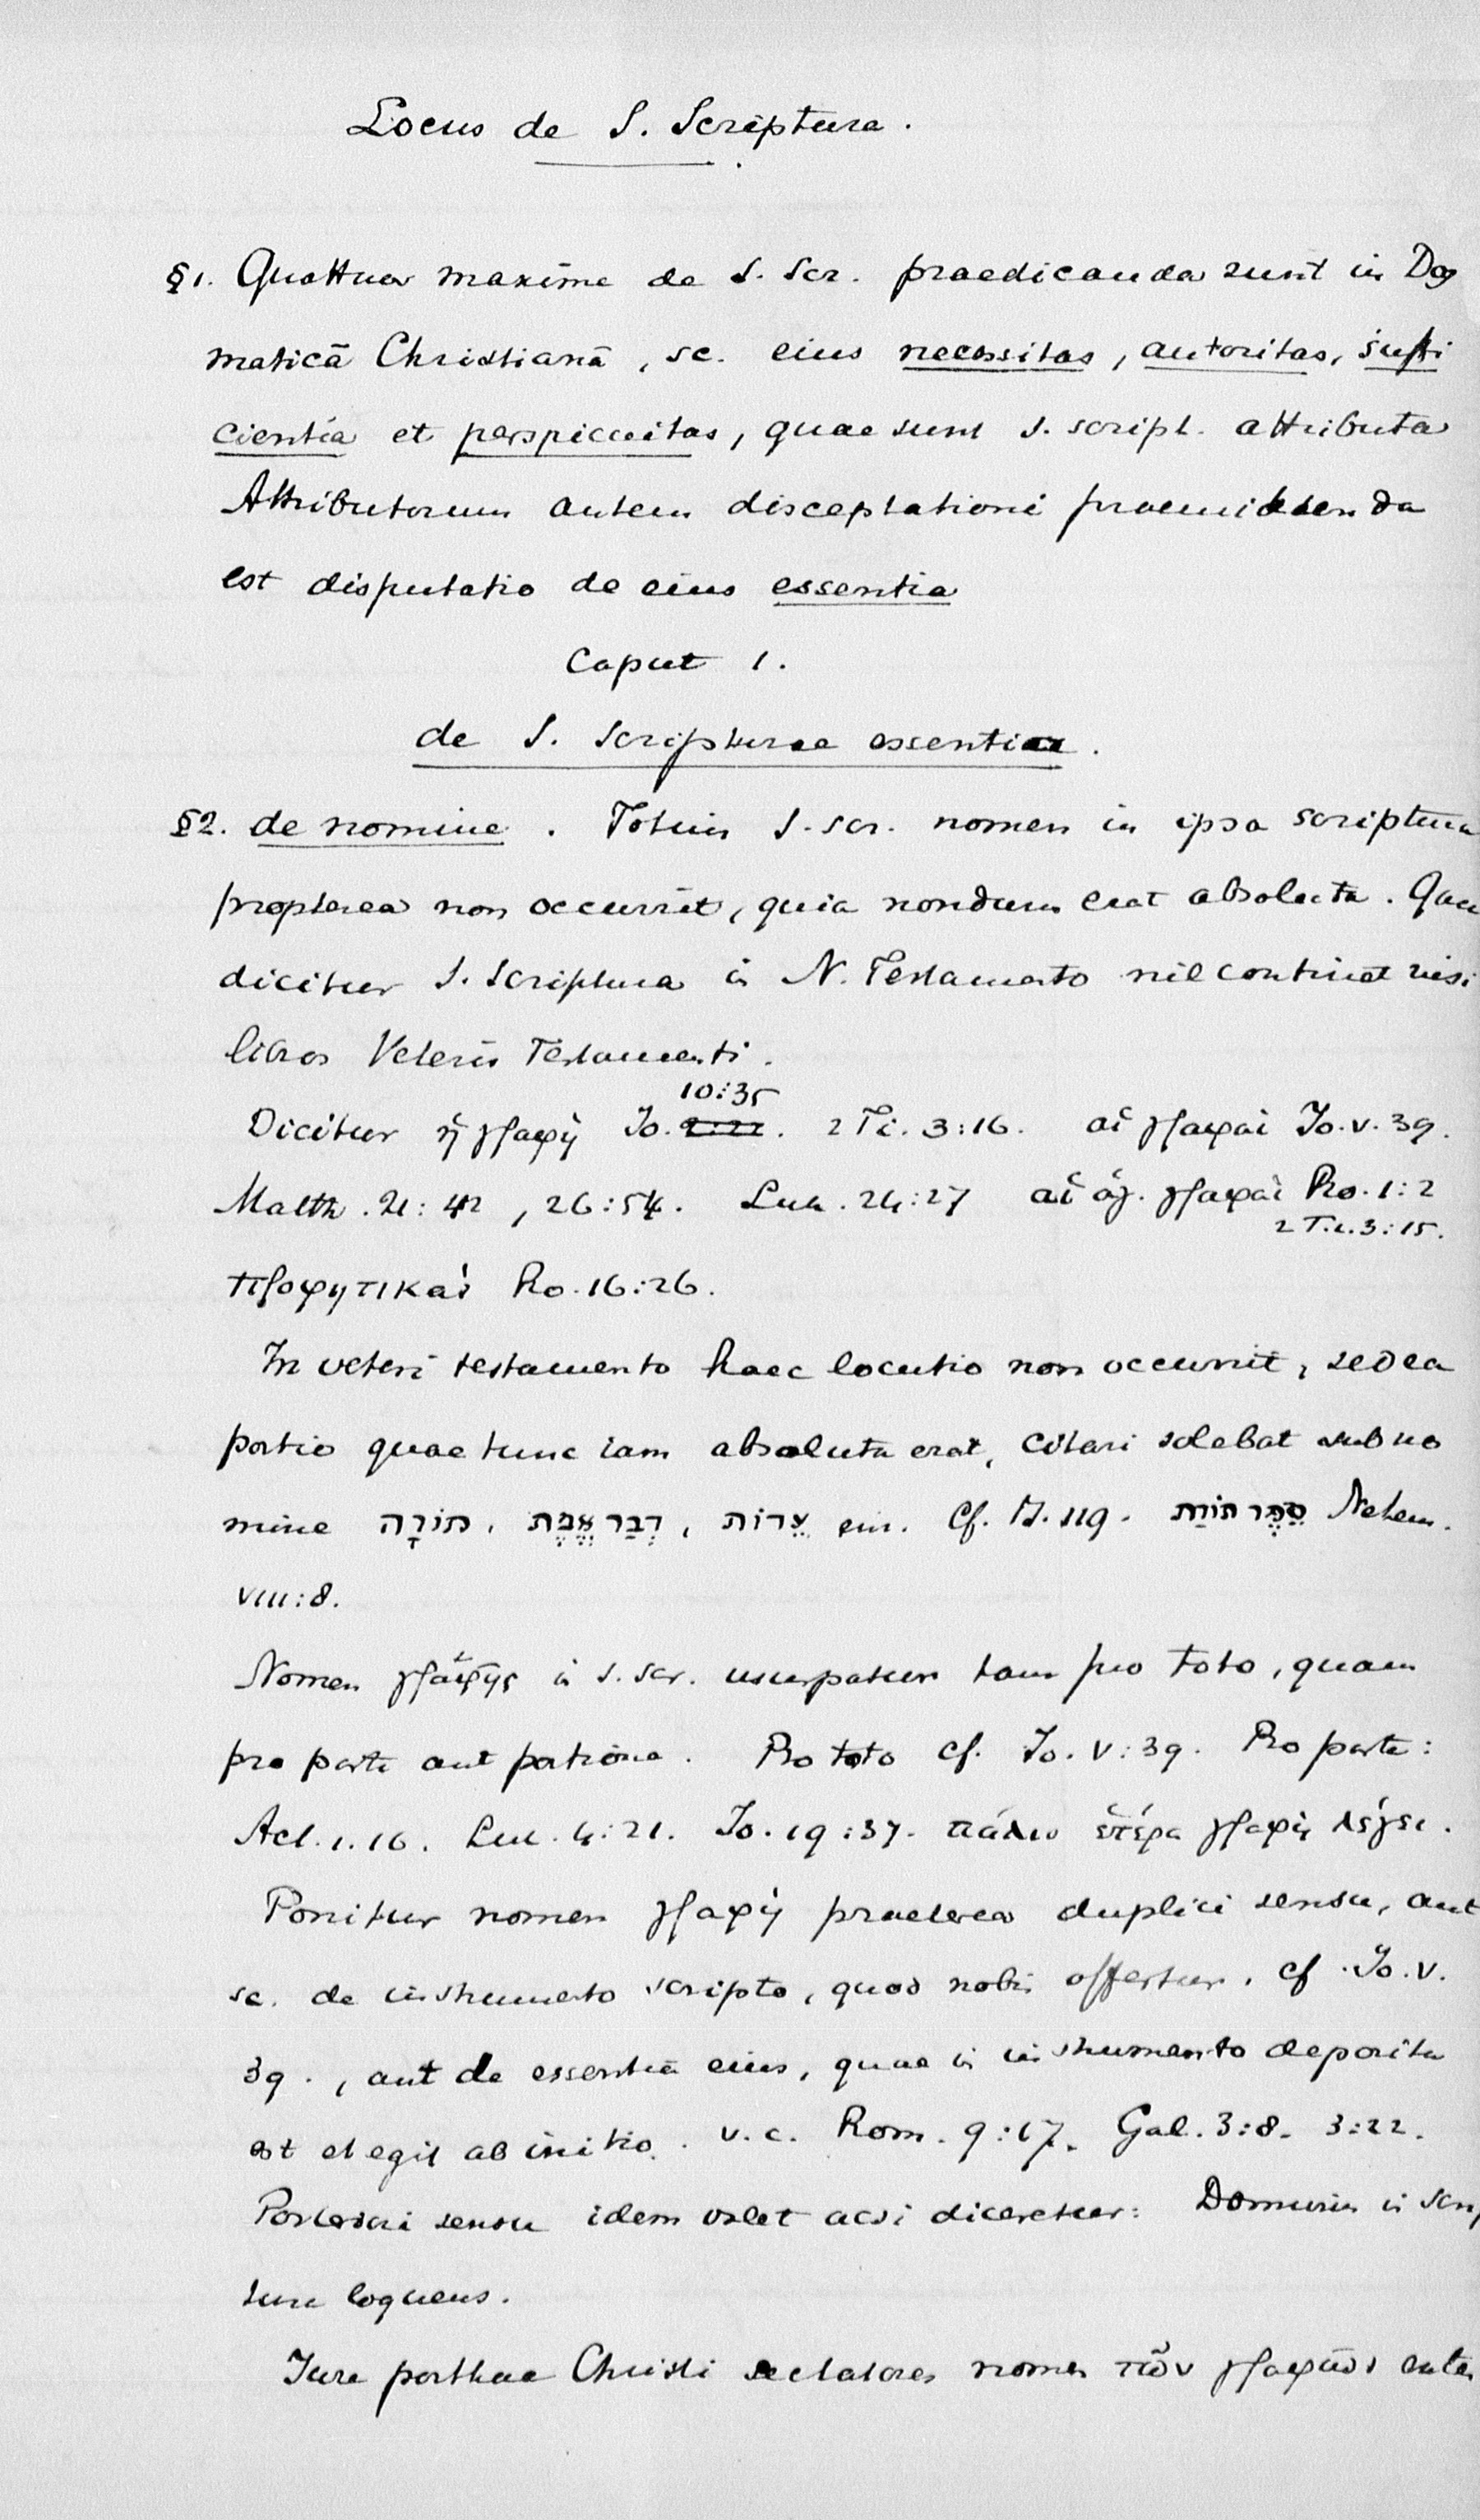 Locus de S. Scriptura.
§1. Quattuor maxime de S. Scr. praedicanda sunt in Dog
maticā Christianā, sc. eius necessitas, autoritas, suffi
cientia et perspicuitas, quae sunt s. script. attributa
Attributorum autem disceptationi praemittenda
est disputatio de eius essentia
Caput 1.
de S. Scripturae essentia.
§2. de nomine. Totum S. scr. nomen in ipsa scriptura
propterea non occurrit, quia nondum erat absoluta. Quae
dicitur S. Scriptura in N. Testamento nil continet nisi
libros Veteris Testamenti.
10:35
Dicitur ἡ γραφὴ Jo. 2:22. 2 Ti. 3:16. αἱ γραφαὶ Jo. v. 39.
Matth. 21:42, 26:54. Luk. 24:27 αἱ ἁγ. γραφαὶ Ro. 1:2
2 Ti. 3:15.
προφητικαὶ Ro. 16:26.
In veteri testamento haec locutio non occurrit, sed ea
portio quae tunc iam absoluta erat, citari solebat sub no
mine תּוֹרָה, דְּבַר אֱמֶת, עֵדוֹת, Cf. Ps. 119. סֵפֶר תּוֹרַת Nehem.
VIII:8.
Nomen γράφης in s. scr. usurpatur tam pro toto, quam
pro parte aut portione. Pro toto cf. Jo. V:39. Pro parte:
Act. 1.16. Luk. 4:21. Jo. 19:37. πάλιν ἑτέρα γραφὴ λέγει.
Ponitur nomen γραφή praeterea duplici sensu, aut
sc. de instrumento scripto, quod nobis offertur, cf. Jo. V.
39., aut de essentiā eius, quae in instrumento deposita
est et egit ab initio. v.c. Rom. 9:17. Gal. 3:8. 3:22.
Posteriori sensu idem valet acsi diceretur: Dominus in Scrip
tura loquens.
Jure posthac Christi sectatores nomen τῶν γραφῶν